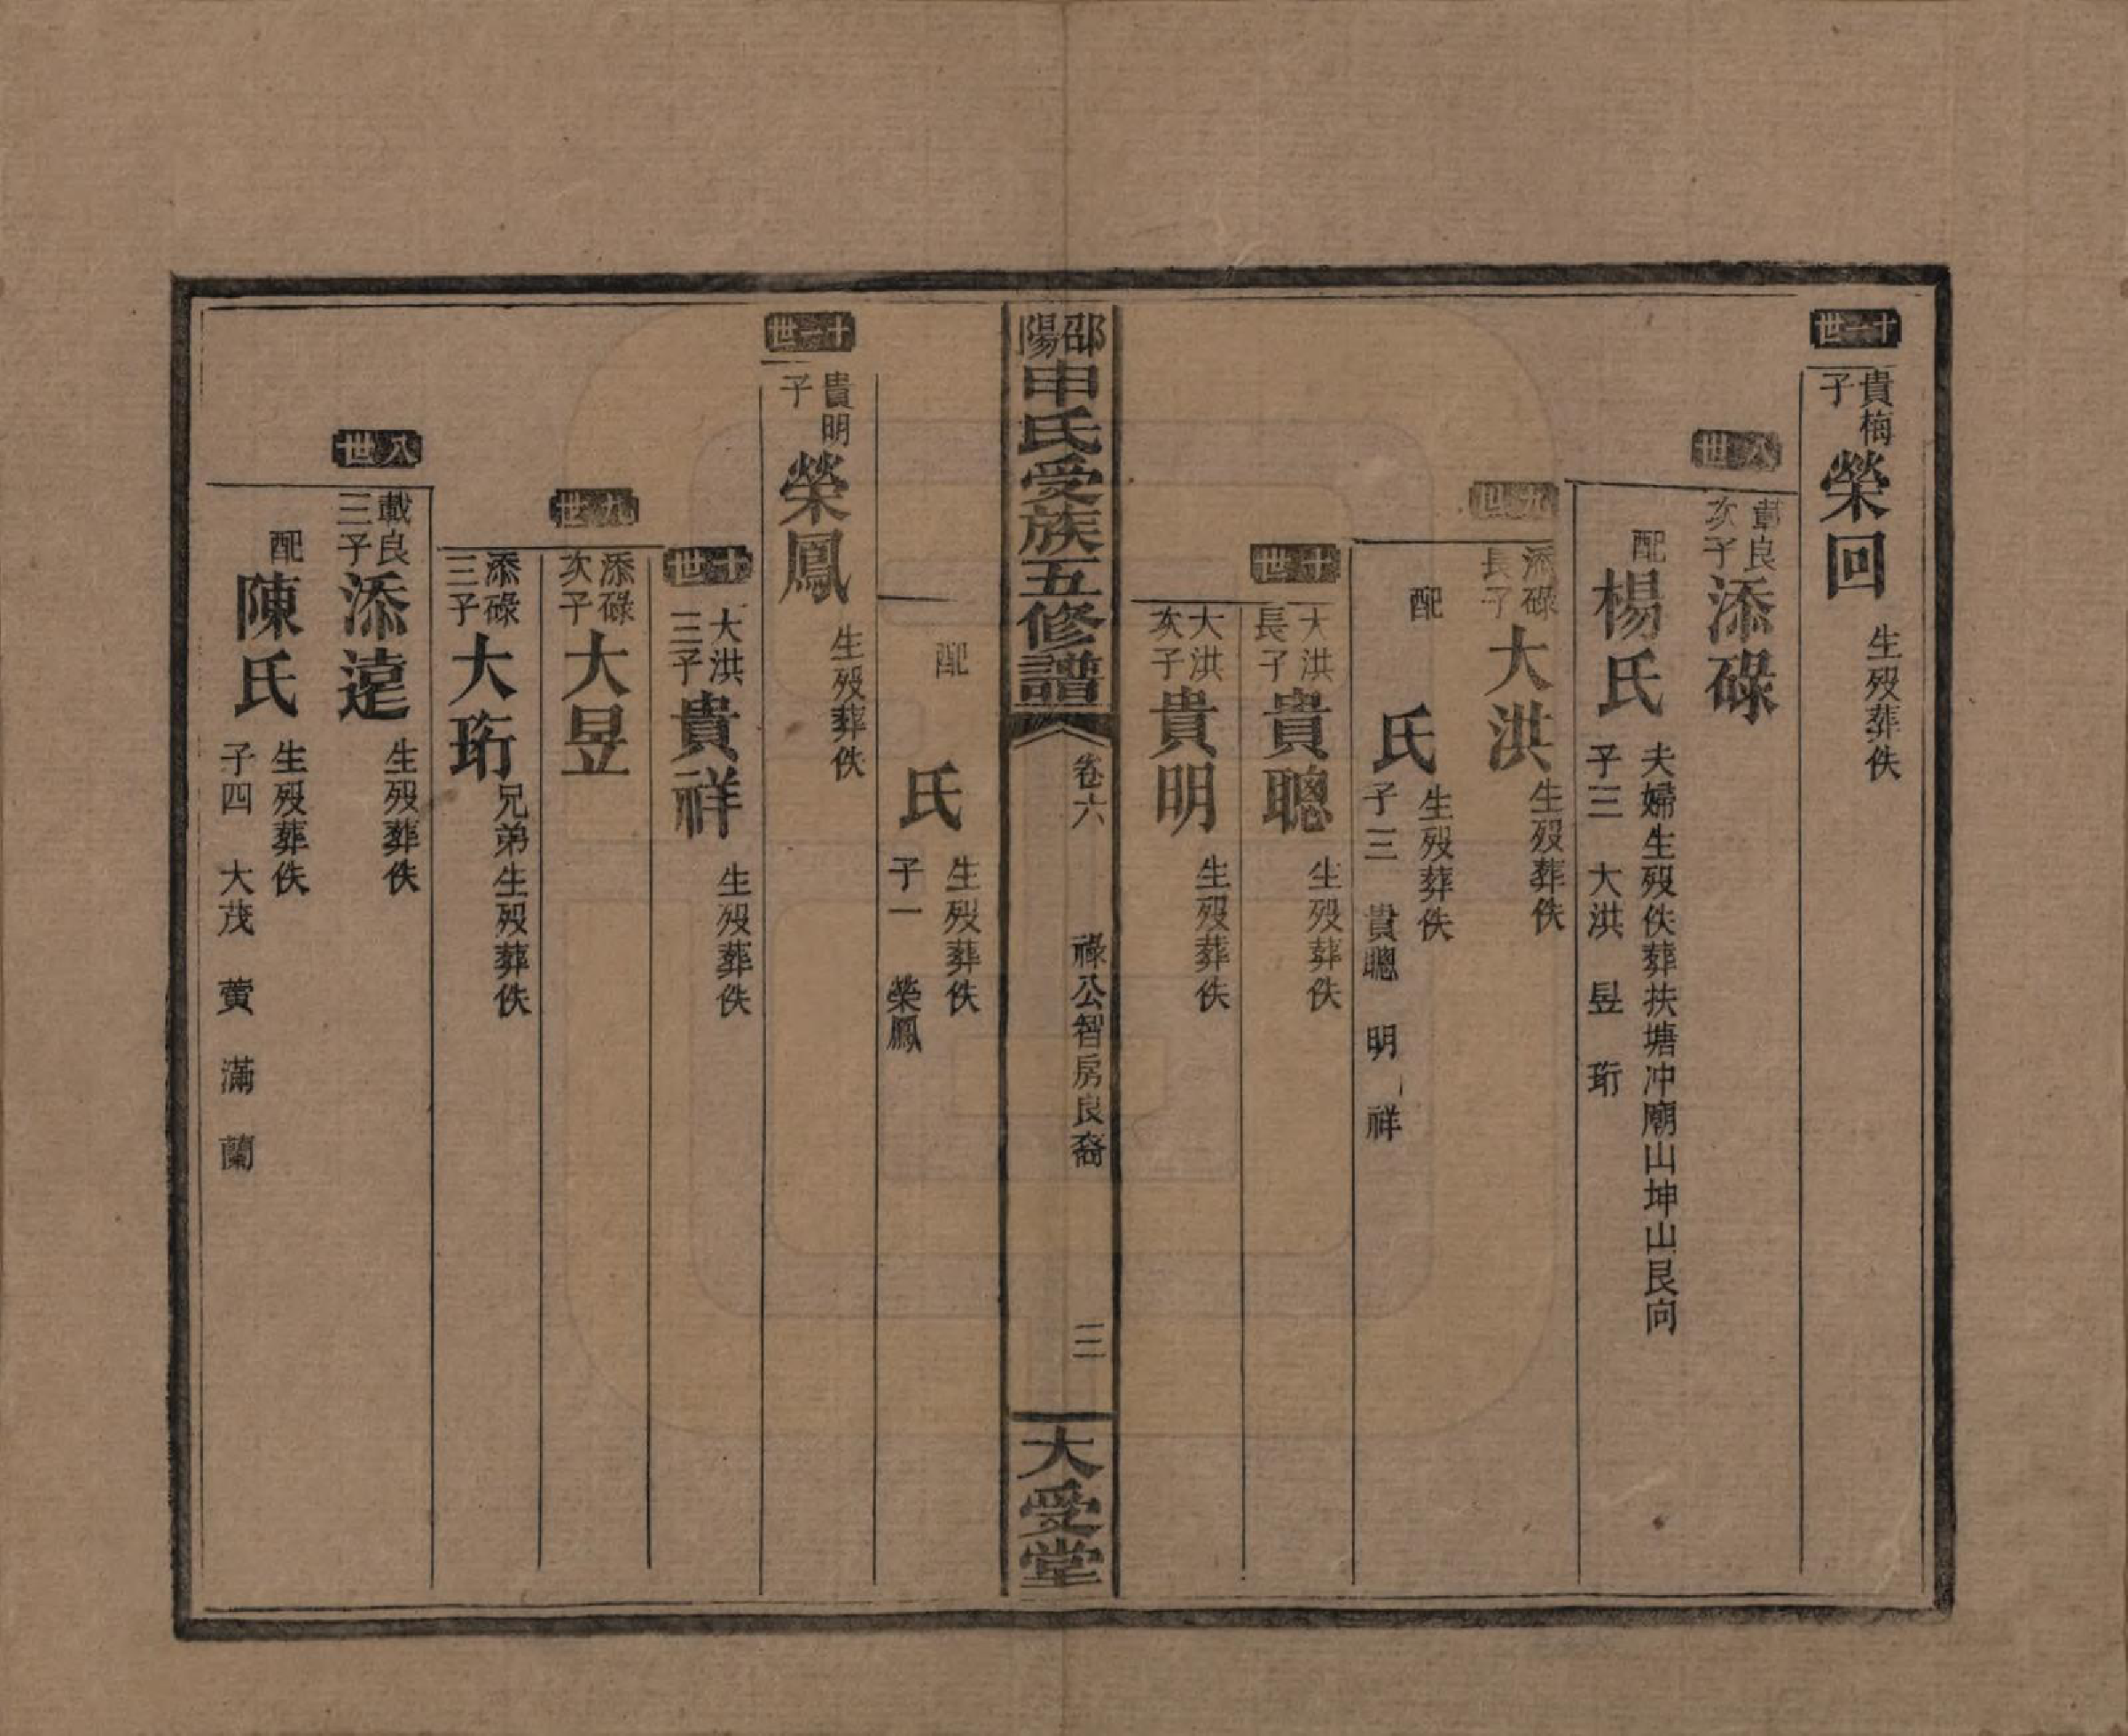 十一世
貴梅子
榮回
生殁葬佚
八世
載良次子
添碌
配
楊氏
夫婦生殁佚葬扶塘冲廟山坤山艮向
子三 大洪 昱 珩
九世
添碌長子
大洪
生殁葬佚
配
氏
生殁葬佚
子三 貴聰 明 祥
十世
大洪長子
貴聰
生殁葬佚
大洪次子
貴明
生殁葬佚
邵陽申氏受族五修譜
卷六
祿公智房良裔
三
大受堂
配
氏
生殁葬佚
子一 榮鳳
十一世
貴明子
榮鳳
生殁葬佚
十世
大洪三子
貴祥
生殁葬佚
九世
添碌次子
大昱
添碌三子
大珩
兄弟生殁葬佚
八世
載良三子
添遠
生殁葬佚
配
陳氏
生殁葬佚
子四 大茂 蕢 滿 蘭